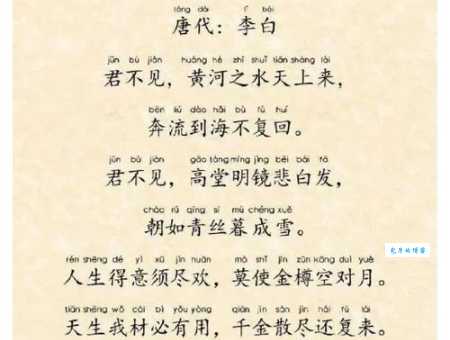 táng dài lǐ bái
唐代：李白
jūn bù jiàn huáng hé zhī shuǐ tiān shàng lái
君不见，黄河之水天上来，
bēn liú dào hǎi bù fù huí
奔流到海不复回。
jūn bù jiàn gāo táng míng jìng bēi bái fà
君不见，高堂明镜悲白发，
zhāo rú qīng sī mù chéng xuě
朝如青丝暮成雪。
rén shēng dé yì xū jìn huān mò shǐ jīn zūn kōng duì yuè
人生得意须尽欢，莫使金樽空对月。
tiān shēng wǒ cái bì yǒu yòng qiān jīn sàn jìn hái fù lái
天生我材必有用，千金散尽还复来。